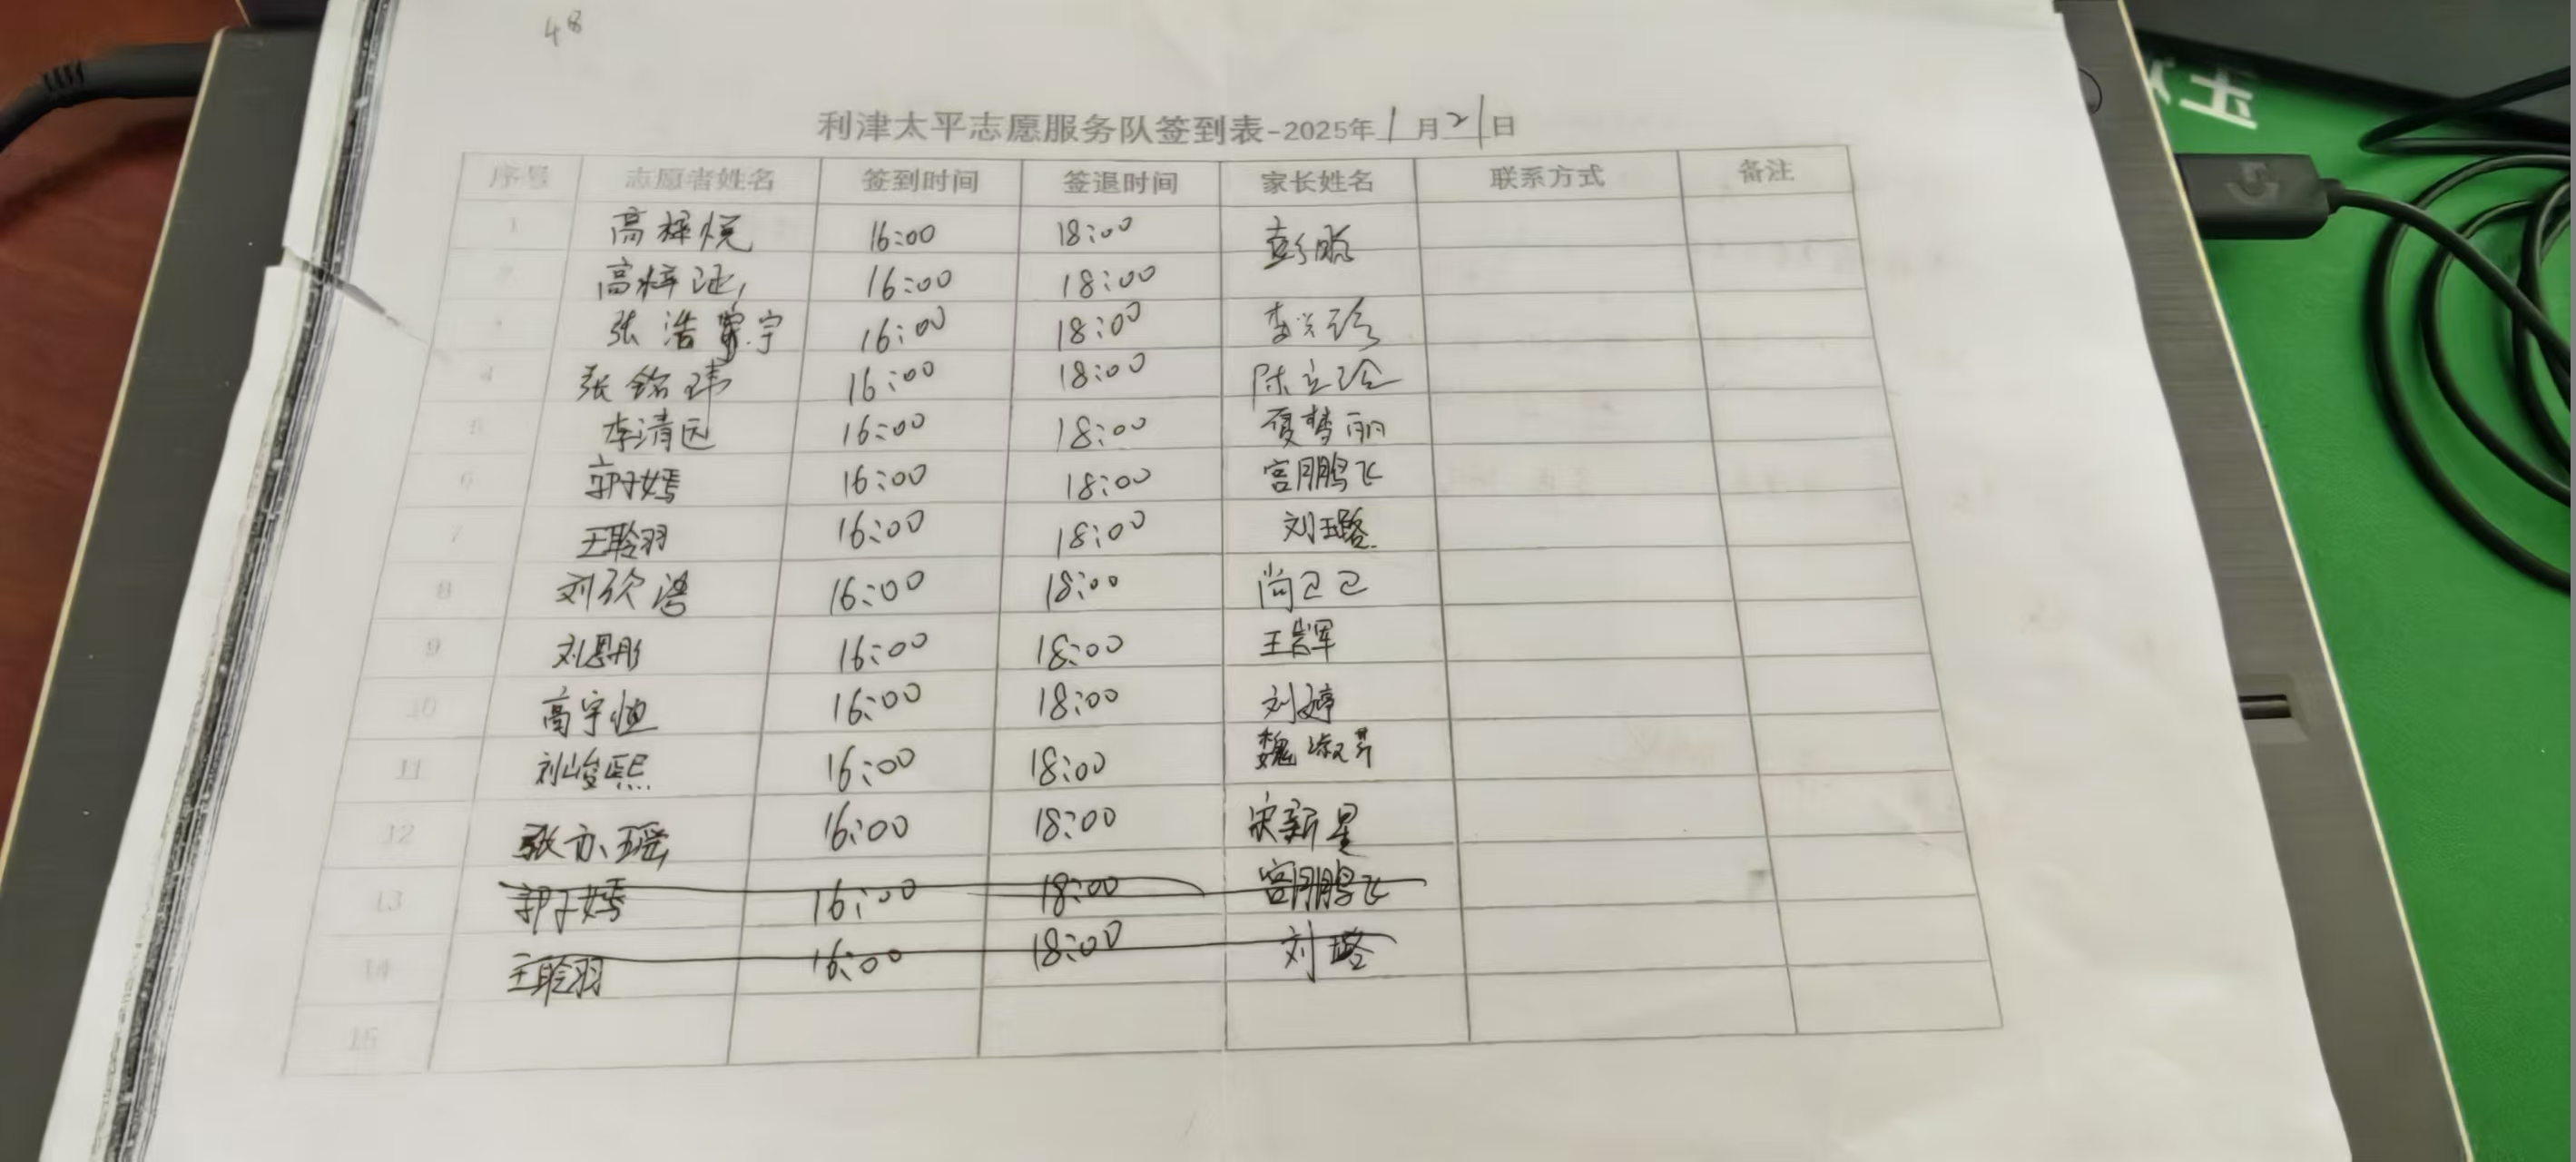 48
利津太平志愿服务队签到表-2025年1月21日
序号 志愿者姓名 签到时间 签退时间 家长姓名 联系方式 备注
1 高梓悦 16:00 18:00 彭鹏
高梓 16:00 18:00
张浩宇 16:00 18:00 李兴珍
4 张铭玮 16:00 18:00 陈立玲
5 李清远 16:00 18:00 夏梦丽
6 郭子嫣 16:00 18:00 宫鹏飞
7 王聆羽 16:00 18:00 刘璐
8 刘欣 16:00 18:00 尚
9 刘恩彤 16:00 18:00 王岩军
10 高宇恒 16:00 18:00 刘婷
11 刘峻熙 16:00 18:00 魏淑芹
12 张亦瑶 16:00 18:00 宋新星
13 郭子嫣 16:00 18:00 宫鹏飞
14 王聆羽 16:00 18:00 刘璐
15
玉